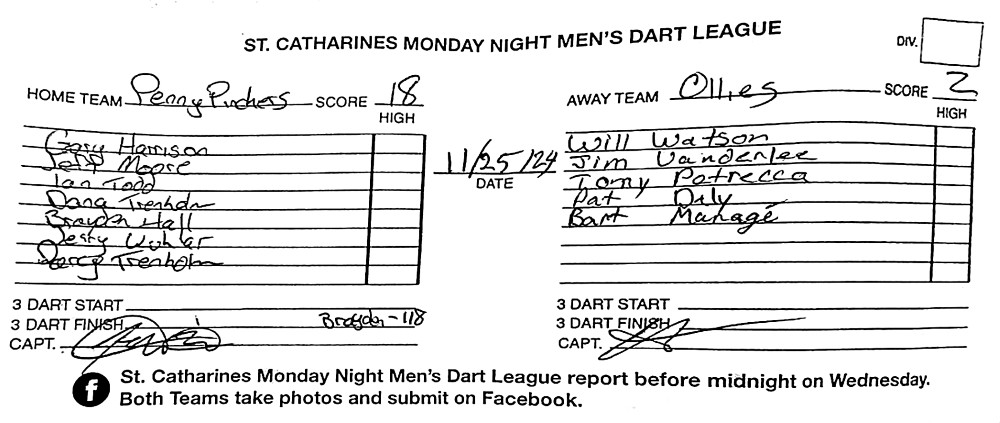 ST. CATHARINES MONDAY NIGHT MEN'S DART LEAGUE
DIV.
HOME TEAM Penny Pinchers SCORE 18
HIGH
AWAY TEAM Ollies SCORE 2
HIGH
Gary Harrison
Jeff Moore
Ian Todd
Dana Trenholm
Brayden Hall
Percy Trenholm
11/25/24
DATE
Will Watson
Jim Vanderlee
Tomy Petrecca
Pat Dily
Bart Managé
3 DART START
3 DART FINISH Brayden-118
CAPT.
3 DART START
3 DART FINISH
CAPT.
f St. Catharines Monday Night Men's Dart League report before midnight on Wednesday.
Both Teams take photos and submit on Facebook.